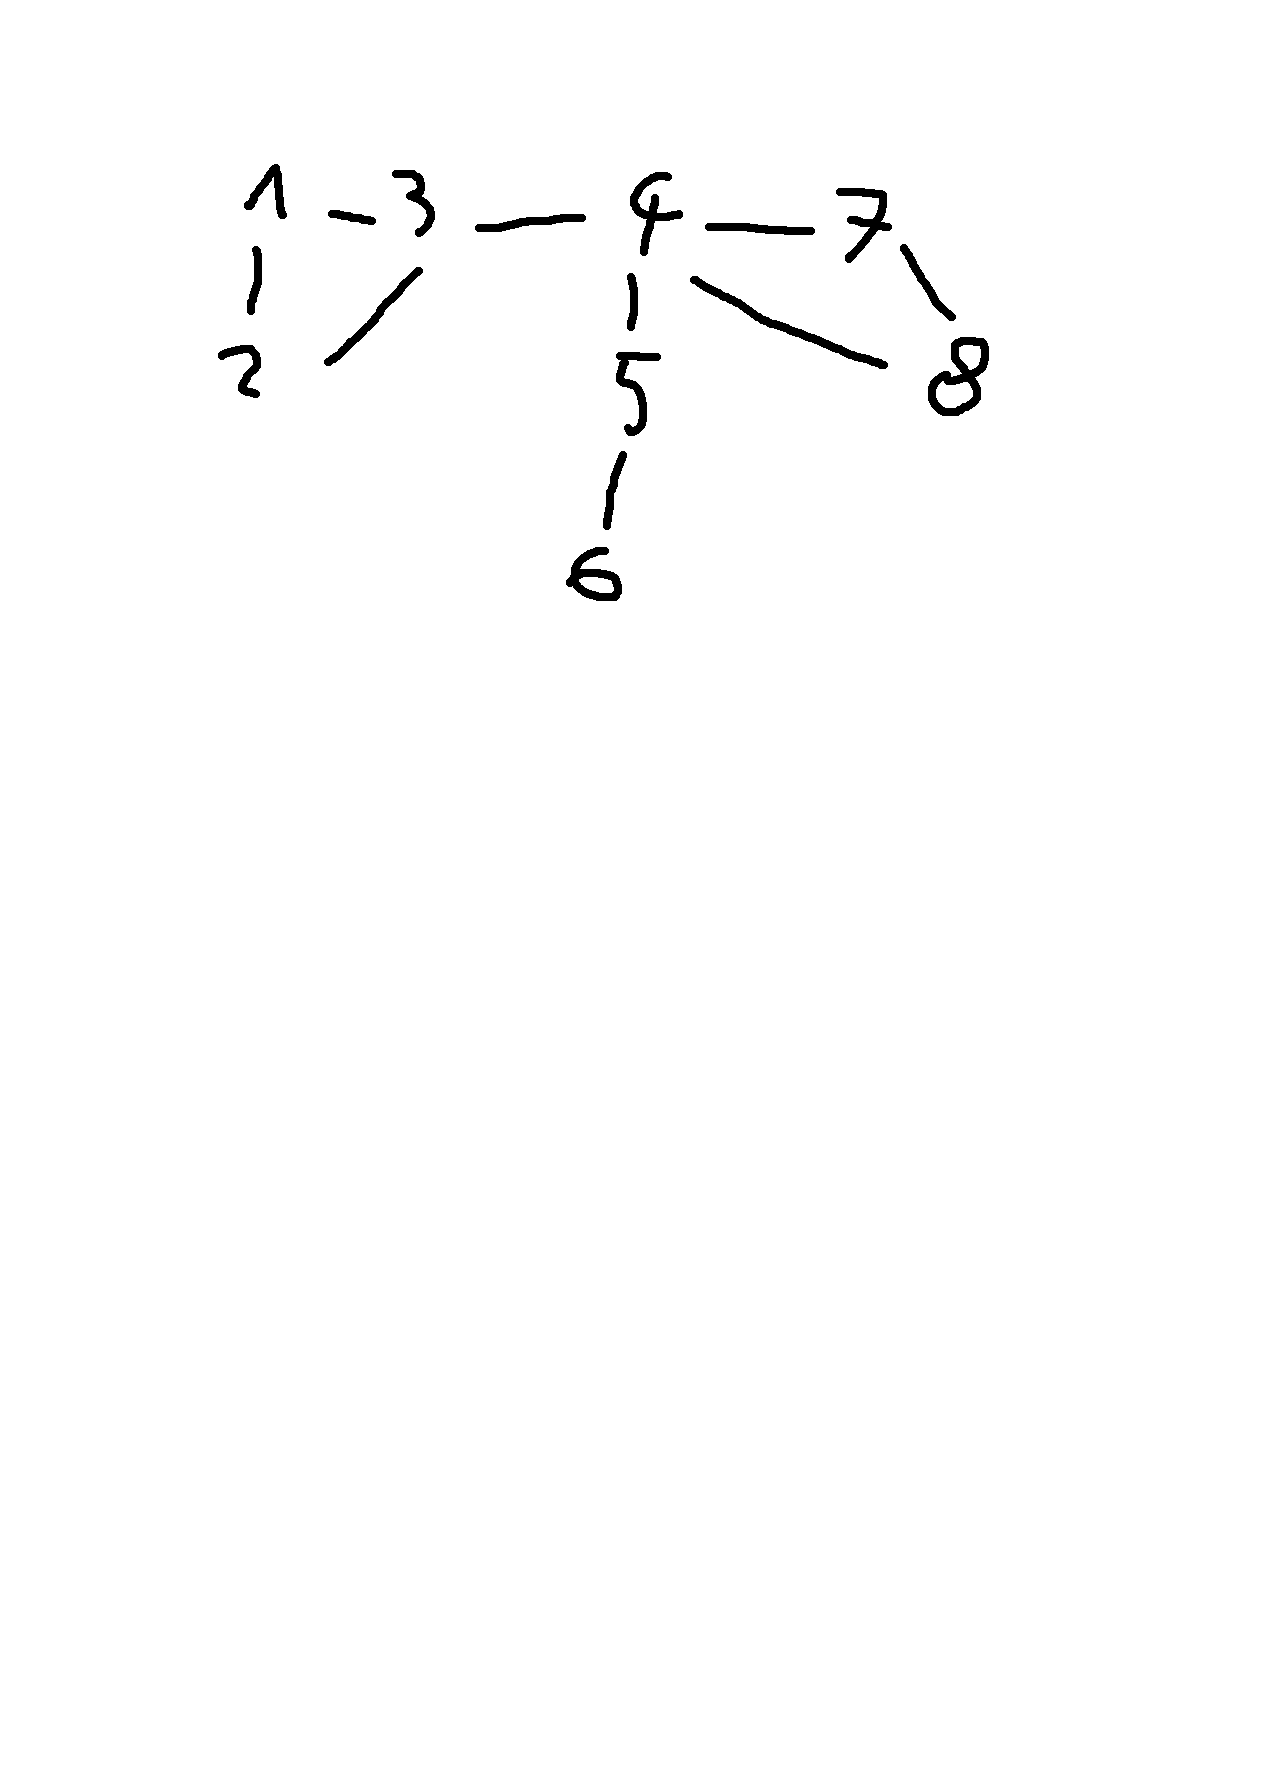 1 3 4 7
2 5 8
6